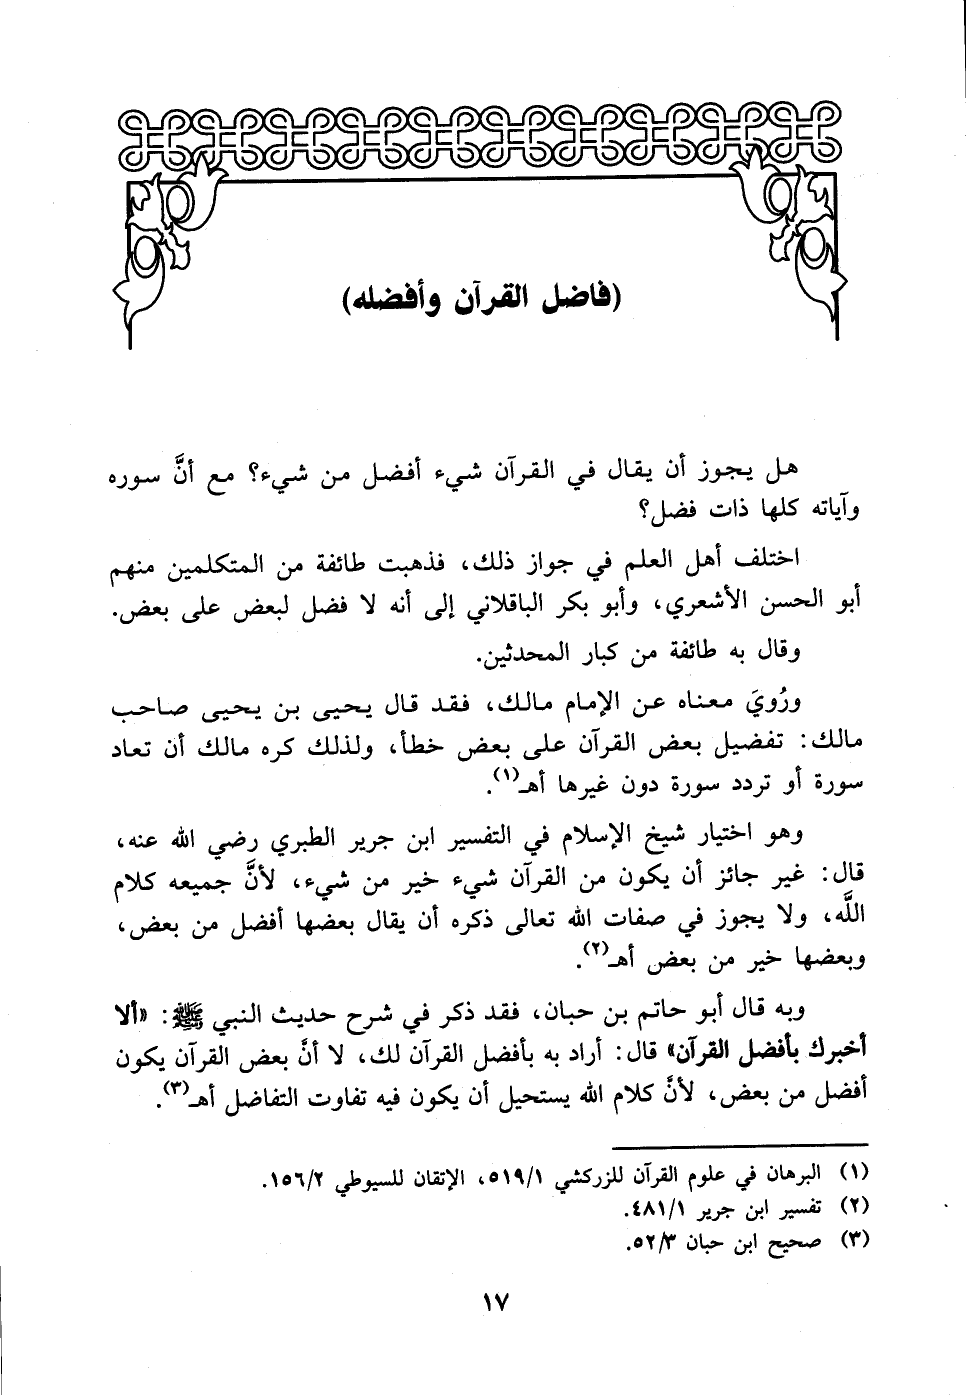 (فاضل القرآن وأفضله)
هل يجوز أن يقال في القرآن شيء أفضل من شيء؟ مع أنَّ سوره
وآياته كلها ذات فضل؟
اختلف أهل العلم في جواز ذلك، فذهبت طائفة من المتكلمين منهم
أبو الحسن الأشعري، وأبو بكر الباقلاني إلى أنه لا فضل لبعض على بعض.
وقال به طائفة من كبار المحدثين.
ورُويَ معناه عن الإمام مالك، فقد قال يحيى بن يحيى صاحب
مالك: تفضيل بعض القرآن على بعض خطأ، ولذلك كره مالك أن تعاد
سورة أو تردد سورة دون غيرها أهـ(١).
وهو اختيار شيخ الإسلام في التفسير ابن جرير الطبري رضي الله عنه،
قال: غير جائز أن يكون من القرآن شيء خير من شيء، لأنَّ جميعه كلام
اللَّه، ولا يجوز في صفات الله تعالى ذكره أن يقال بعضها أفضل من بعض،
وبعضها خير من بعض أهـ(٢).
وبه قال أبو حاتم بن حبان، فقد ذكر في شرح حديث النبي ﷺ: «ألا
أخبرك بأفضل القرآن» قال: أراد به بأفضل القرآن لك، لا أنَّ بعض القرآن يكون
أفضل من بعض، لأنَّ كلام الله يستحيل أن يكون فيه تفاوت التفاضل أهـ(٣).
(١) البرهان في علوم القرآن للزركشي ٥١٩/١، الإتقان للسيوطي ١٥٦/٢.
(٢) تفسير ابن جرير ٤٨١/١.
(٣) صحيح ابن حبان ٥٢/٣.
١٧